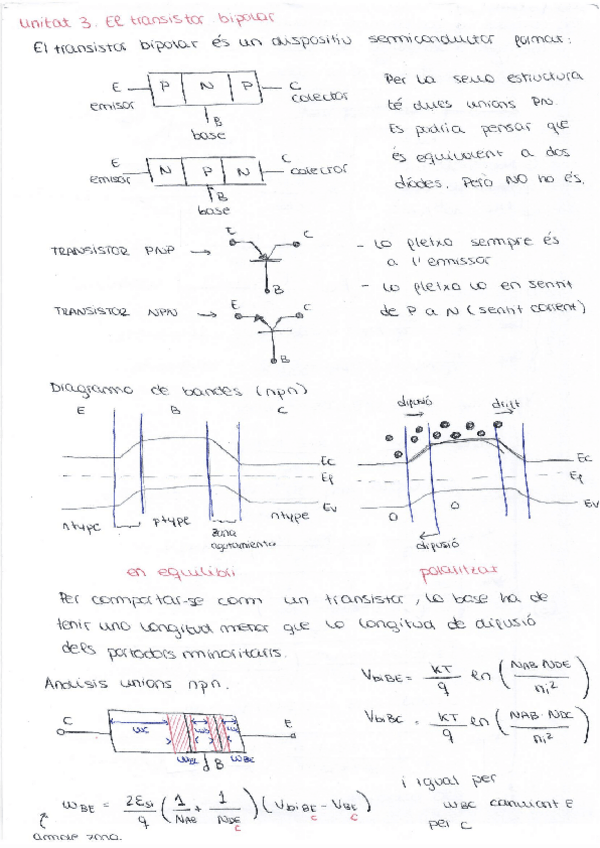 Unitat 3. El transistor bipolar
El transistor bipolar és un dispositiu semiconductor format:
E P N P C
emisor colector
B
base
E N P N C
emisor colector
B
base
Per la seua estructura
té dues unions PN.
Es podria pensar que
és equivalent a dos
díodes. Però NO ho és.
TRANSISTOR PNP → E C
B
TRANSISTOR NPN → E C
B
- La fletxa sempre és
a l'emissor
- La fletxa va en sentit
de P a N (sentit corrent)
Diagrama de bandes (npn)
E B C
Ec
Ef
Ev
ntype ptype zona agotamiento ntype
difusió drift
Ec
Ef
Ev
difusió
en equilibri polaritzar
Per comportar-se com un transistor, la base ha de
tenir una longitud menor que la longitud de difusió
dels portadors minoritaris.
Anàlisis unions npn.
VbiBE = KT/q ln (NAB NDE / ni²)
VbiBC = KT/q ln (NAB · NDC / ni²)
C WC E
B WBC
WBE = 2εsi/q (1/NAB + 1/NDE) (VbiBE - VBE)
C C C
i igual per
WBC canviant E
per C